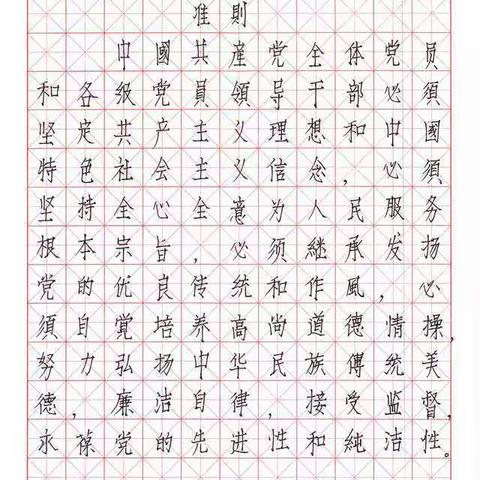 准則
中國共産党全体党员
和各级党員領导干部必須
坚定共产主义理想和中國
特色社会主义信念，必須
坚持全心全意为人民服务
根本宗旨，必须継承发扬
党的优良传统和作風，必
須自覚培养高尚道德情操，
努力弘扬中华民族傳统美
德，廉洁自律，接受监督，
永葆党的先进性和純洁性。